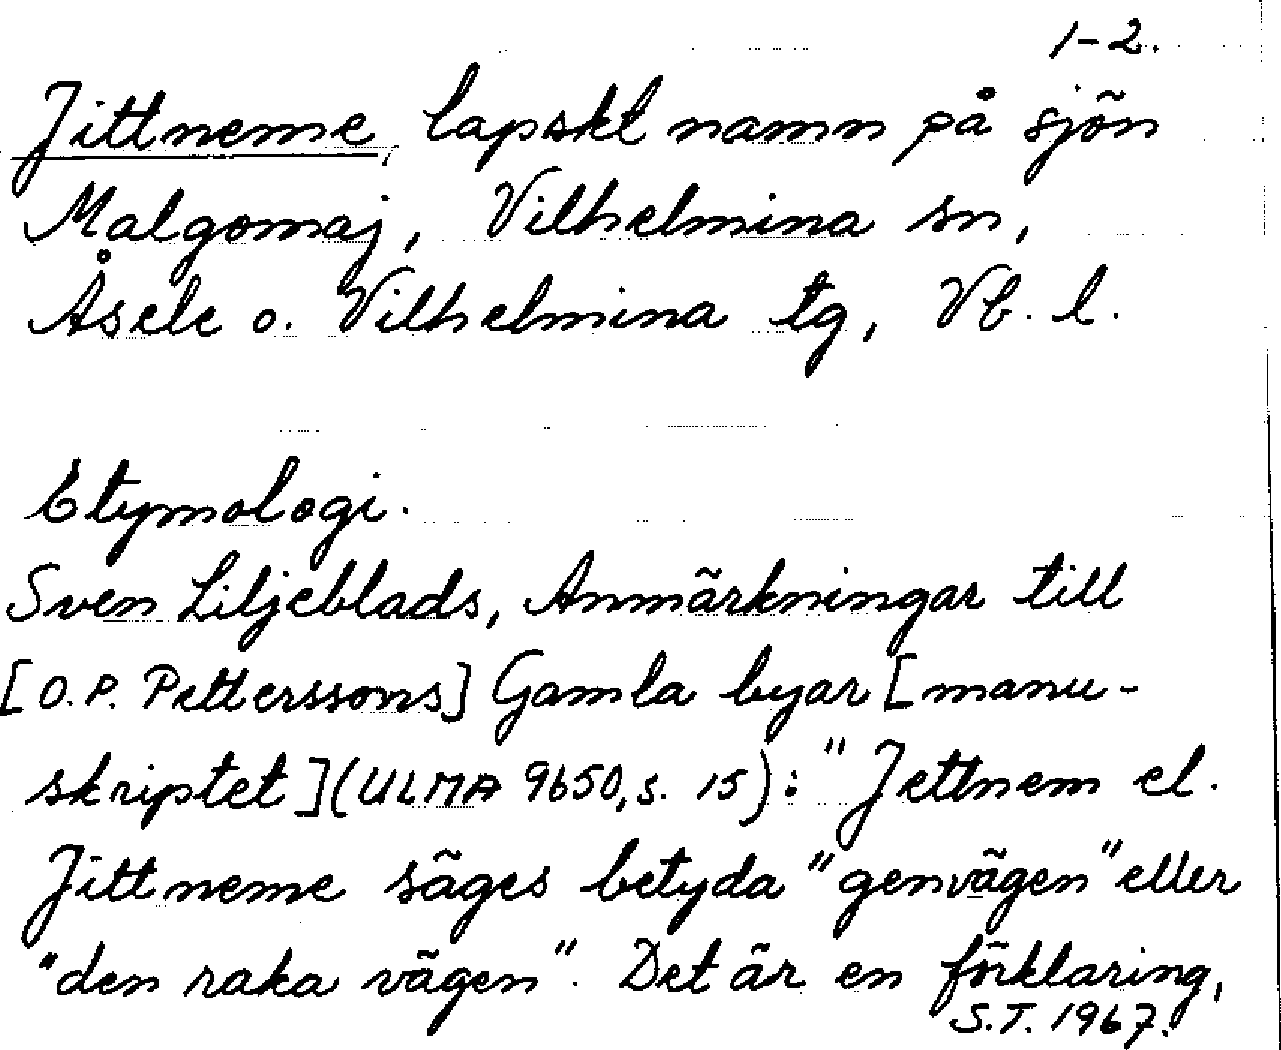 1-2.
Jittneme, lapskt namn på sjön
Malgomaj, Vilhelmina sn,
Åsele o. Vilhelmina tg, Vb. l.
Etymologi.
Sven Liljeblads, Anmärkningar till
[O.P. Petterssons] Gamla byar [manu-
skriptet] (ULMA 9650, s. 15): "Jettnem el.
Jittneme säges betyda "genvägen" eller
"den raka vägen". Det är en förklaring,
S.T. 1967.